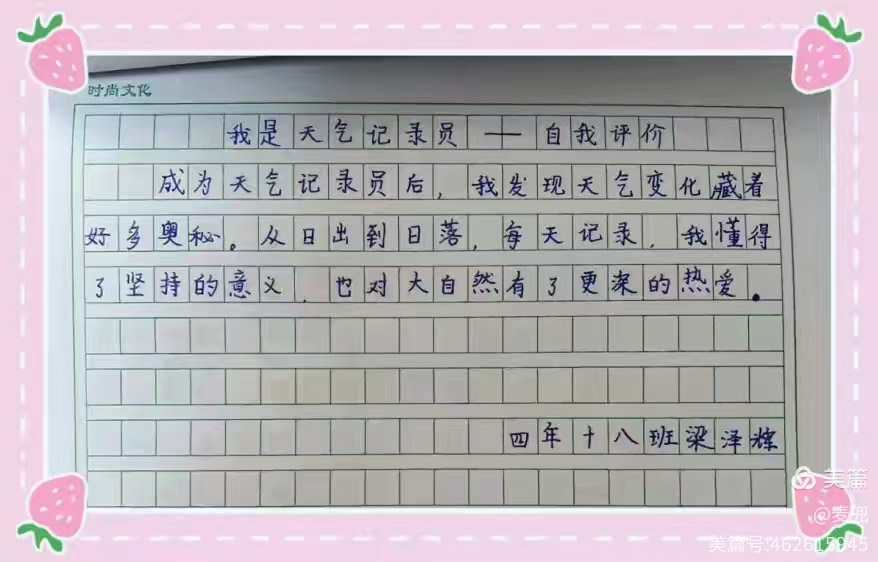 时尚文化
我是天气记录员——自我评价
成为天气记录员后,我发现天气变化藏着
好多奥秘。从日出到日落,每天记录,我懂得
了坚持的意义,也对大自然有了更深的热爱。
四年十八班梁泽辉
美篇
@麦兜
美篇号:462615945